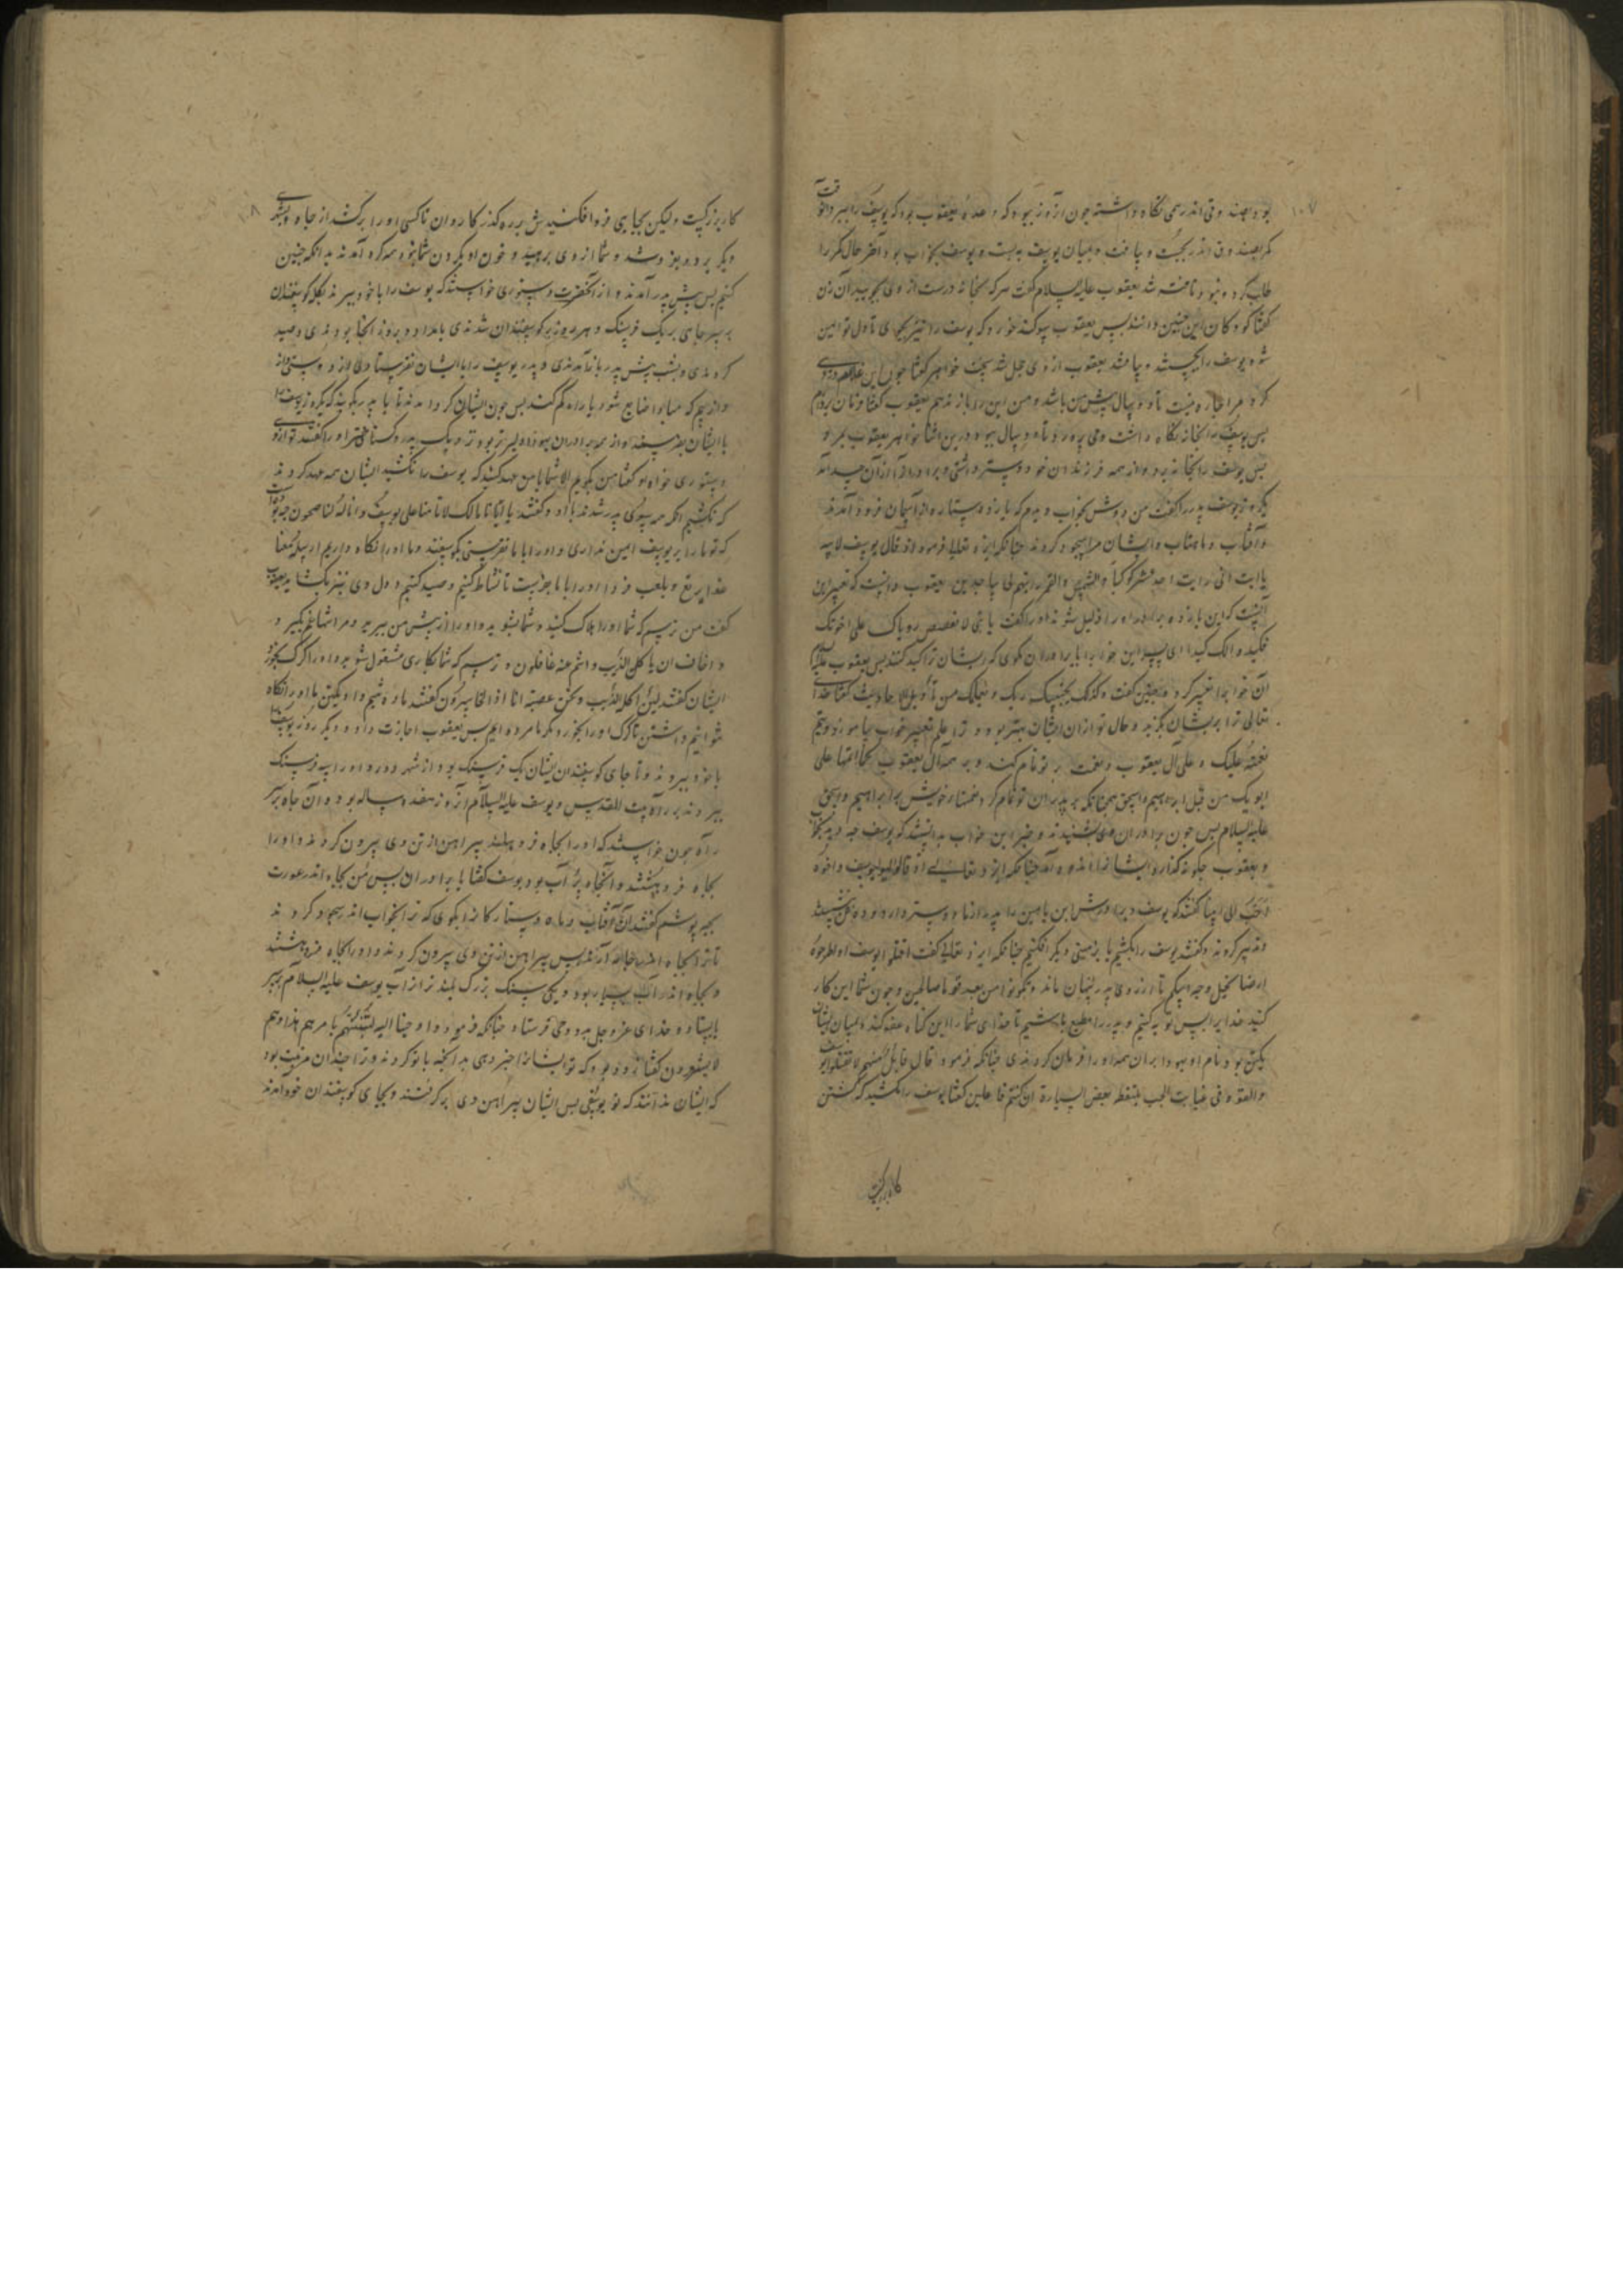 ۱۰۷
بود و بصندوقی اندر همی نگاه داشته چون آن روز ببود که وعده یعقوب بود که یوسف را ببرد آن وقت
کمر بصندوق اندر بجست و بیافت و بمیان یوسف ببست و یوسف بخواب بود آخر حال کمر را
طلب کرد و نبود یافته شد یعقوب علیه السلام گفت هر که بخانه درست از وی بجویید آن زن
گفتا کودکان این چنین دانند پس یعقوب سوگند خورد که یوسف را نیز بجوی تا دل تو ایمن
شود یوسف را بجستند و یافتند یعقوب از وی خجل شد بجفت خواهر گفتا چون این
کرد مرا چاره نیست تا دو سال پیش من باشد و من این را باز ندهم یعقوب گفتا فرمان تراست
پس یوسف به آنجا نگاه داشت وی پرورد تا دو سال ببود درین اثنا خواهر یعقوب بمرد و
پس یوسف را بخانه برد و از همه فرزندان خود دوستر داشتی و برادران را از آن حسد آمد
یکروز یوسف پدر را گفت من دوش بخواب دیدم که یازده ستاره از آسمان فرود آمدند
و آفتاب و ماهتاب و ایشان مرا سجود کردند چنانکه ایزد تعالی فرمود اذ قال یوسف لابیه
یا ابت انی رایت احد عشر کوکبا و الشمس والقمر رایتهم لی ساجدین یعقوب دانست که تعبیر این
آنست که این یازده برادر او را ذلیل شوند او را گفت یا بنی لا تقصص رویاک علی اخوتک
فیکیدوا لک کیدا ای پسر این خواب را با برادران مگوی که ایشان ترا کید کنند پس یعقوب علیه السلام
آن خواب را تعبیر کرد و همچنین گفت وکذلک یجتبیک ربک و یعلمک من تاویل الاحادیث گفتا خدای
تعالی ترا بر ایشان بگزید و حال تو از آن ایشان بهتر بود و ترا علم تعبیر خواب بیاموزد ویتم
نعمته علیک و علی آل یعقوب و نعمت بر تو تمام کند و بر همه آل یعقوب کما اتمها علی
ابویک من قبل ابراهیم و اسحق همچنانکه بر پدران تو تمام کرد نعمتهاء خویش برابراهیم و اسحق
علیه السلام پس چون برادران وی بشنیدند و خبر این خواب بدانستند که یوسف چه دید
و یعقوب چگونه گزارد ایشان را اندوه آمد چنانکه ایزد تعالی اذ قالوا لیوسف و اخوه
احب الی ابینا گفتند که یوسف و برادرش ابن یامین را پدر از ما دوستر دارد و
و تدبیر کردند و گفتند یوسف را بکشیم یا بزمینی دیگر افکنیم چنانکه ایزد تعالی گفت اقتلوا یوسف او اطرحوه
ارضا یخل لکم وجه ابیکم تا از روی پدر پنهان ماند و تکونوا من بعده قوما صالحین و چون شما این کار
کنید خدایرا پس توبه کنیم و پدر را مطیع باشیم تا خدای شما را این گناه عفو کند و از میان ایشان
یکتن بود نام او یهودا بر آن همه او را فرمان کردندی چنانکه فرمود قال قائل منهم لا تقتلوا یوسف
والقوه فی غیابت الجب یلتقطه بعض السیارة ان کنتم فاعلین گفتا یوسف را مکشید که کشتن
کار بزرگیست
۱۰۸
کار بزرگیست ولیکن بجایی فرو افکنیدش بر رهگذر کاروان تا کسی او را برکشد از چاه و بشهری
دیگر برد و بفروشد و شما از وی برهید و خون او بگردن شما نبود همه گرد آمدند بدانکه چنین
کنیم پس پیش پدر آمدند و از آنحضرت دستوری خواستند که یوسف را با خود ببرند بگله گوسفندان
بر سر چاهی بر یک فرسنگ و هر روز بر گوسفندان شدندی بامداد و بروز آنجا بودندی و صید
کردندی و بشب پیش پدر باز آمدندی و پدر یوسف را با ایشان نفرستادی از دوستی او
و از بیم که مبادا ضایع شود یا راه گم کند پس چون ایشان گرد آمدند تا با پدر بگویند که یکروز یوسف را
با ایشان بفرستد و از همه برادران یهودا دلیرتر بود و نزدیک پدر گستاختر او را گفتند تو از وی
دستوری خواه او گفتا من بگویم الا شما با من عهد کنید که یوسف را نکشید ایشان همه عهد کردند
که نکشیم آنگه همه بسوی پدر شدند با او و گفتند یا ابانا مالک لا تامنا علی یوسف و انا له لناصحون چه بودست
که تو ما را بر یوسف امین نداری و او را با ما نفرستی بگوسفند و ما او را نگاه داریم ارسله معنا
غدا یرتع و یلعب فردا او را با ما بفرست تا نشاط کنیم و صید کنیم و دل وی نیز بگشاید یعقوب
گفت من ترسم که شما او را هلاک کنید و شما بشوید و او را از پیش من ببرید و مرا تنها غم گیرد و
و اخاف ان یاکله الذئب و انتم عنه غافلون و ترسم که شما بکاری مشغول شوید و او را گرگ بخورد
ایشان گفتند لئن اکله الذئب و نحن عصبة انا اذا لخاسرون گفتند ما ده تنیم و او یکتن ما او را نگاه
نتوانیم داشتن تا گرگ او را بخورد مگر ما مرده ایم پس یعقوب اجازت داد و دیگر روز یوسف را
با خود ببردند و تا جای گوسفندان ایشان یک فرسنگ بود از شهر دور و او را سه فرسنگ
ببردند بر راه بیت المقدس و یوسف علیه السلام آن روز هفده ساله بود و آن چاه بر سر
راه چون خواستند که او را بچاه فرو هلند پیراهن از تن وی بیرون کردند و او را
بچاه فرو هشتند و آنچاه پر آب بود یوسف گفتا یا برادران پس من بچاه اندر عورت
بچه پوشم گفتند آن آفتاب و ماه و ستارگان را بگوی که ترا بخواب اندر سجود کردند
تا ترا بچاه اندر جامه آرند پس پیراهن از تن وی بیرون کردند و او را بچاه فرو هشتند
و بچاه اندر آب بسیار بود و یکی سنگ بزرگ بلندتر از آب یوسف علیه السلام بر سر
بایستاد و خدای عز و جل بدو وحی فرستاد چنانکه فرمود و اوحینا الیه لتنبئنهم بامرهم هذا وهم
لا یشعرون گفتا زود بود که تو ایشان را خبر دهی بدانچه با تو کردند و ترا چندان مرتبت بود
که ایشان ندانند که تو یوسفی پس ایشان پیراهن وی برگرفتند و بجای گوسفندان خود آمدند